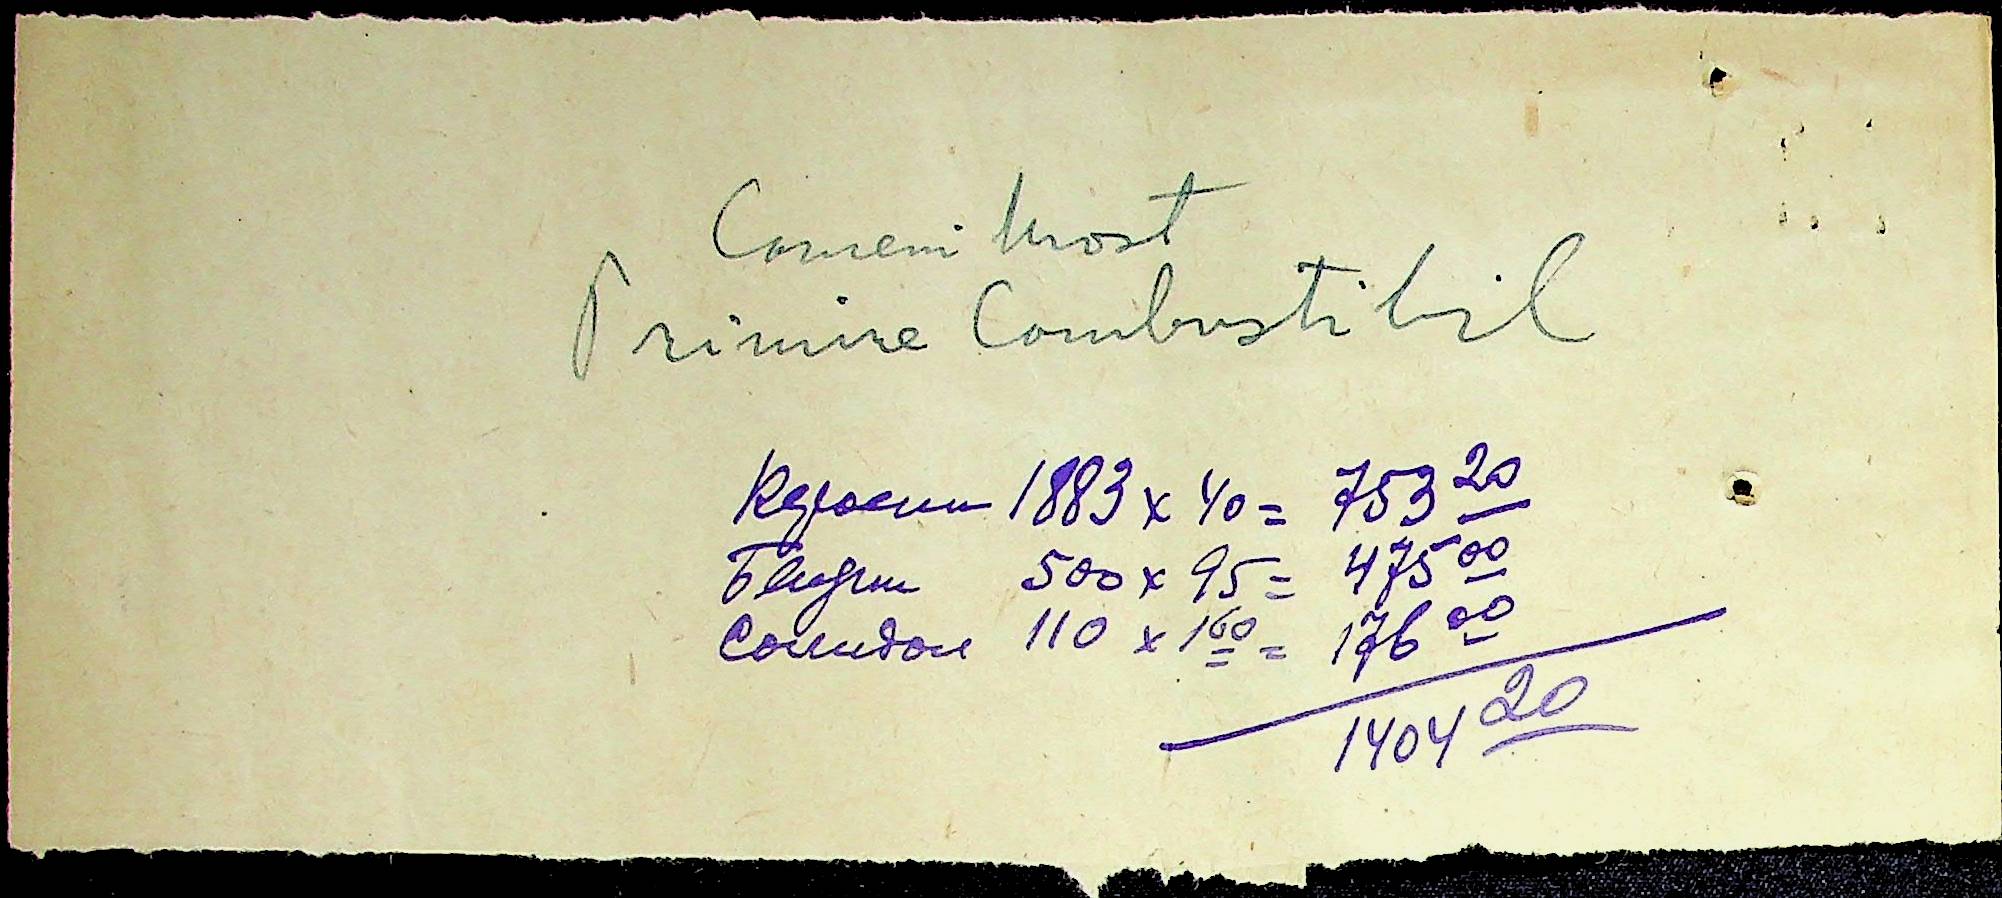 Cameni Most
Primire Combustibil
Керосин 1883 x 40 = 753 20
Бензин 500 x 95 = 475 00
Солидол 110 x 1 60 = 176 00
1404 20